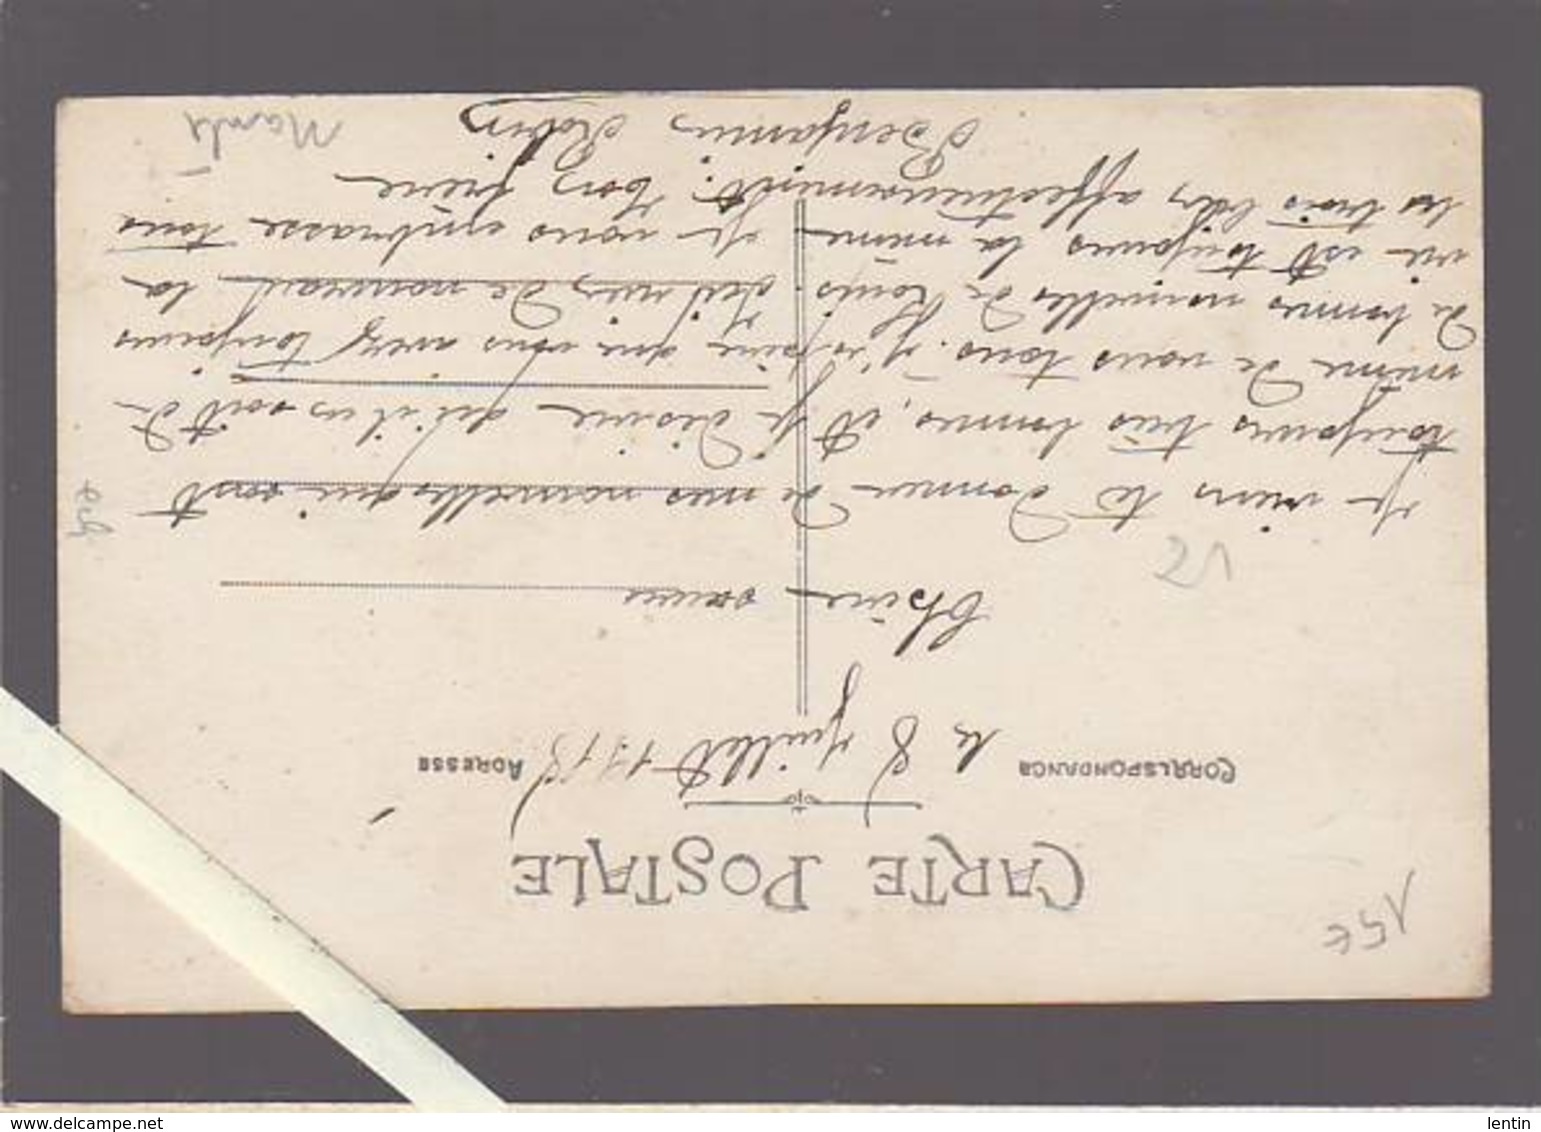 15€
CARTE POSTALE
CORRESPONDANCE
ADRESSE
le 8 Juillet 1915
Chère sœur
12
Je viens te donner de mes nouvelles qui sont
toujours très bonnes, et je désire qu'il en soit de
même de vous tous. J'espère que vous avez toujours
de bonnes nouvelles de Louis. Ici rien de nouveau la
vie est toujours la même Je vous embrasse tous
les trois bien affectueusement. Ton frère
Benjamin Robin
www.delcampe.net
lentin